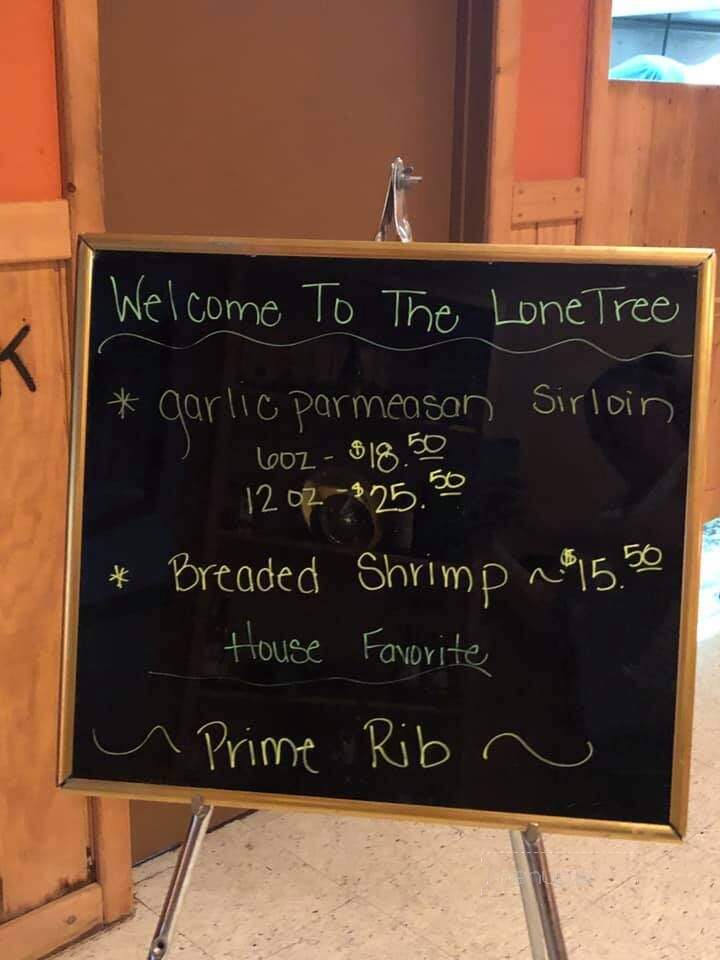 Welcome To The LoneTree
* garlic parmeasan Sirloin
6oz - $18.50
12 oz - $25.50
* Breaded Shrimp ~ $15.50
House Favorite
~ Prime Rib ~
K